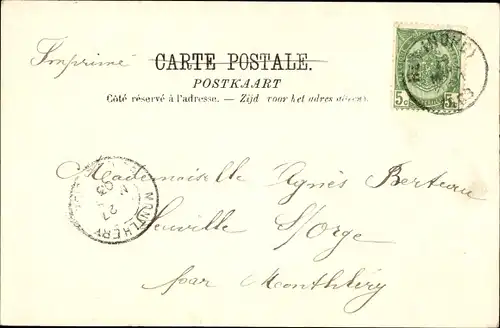 Imprimé
CARTE POSTALE.
POSTKAART
Côté réservé à l'adresse. — Zijd voor het adres
5c 5c
Mademoiselle Agnès Berteau
Leuville S/Orge
par Monthléry
MONTLHERY
27
03